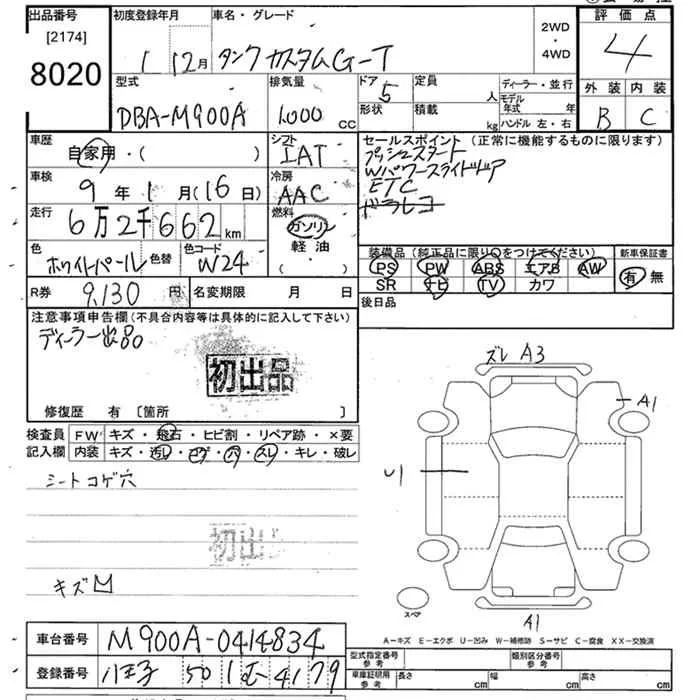 出品番号
[2174]
8020
初度登録年月
1 12月
車名・グレード
タンク カスタムG-T
2WD
・
4WD
評価点
4
外装 内装
B C
型式
DBA-M900A
排気量
1,000 cc
ドア 5
形状
定員 人
積載 kg
ディーラー・並行
モデル年式 年
ハンドル 左・右
車歴
自家用・( )
シフト
IAT
車検
9年 1月(16日)
冷房
AAC
走行
6万2千662km
燃料
ガソリン
軽油・
( )
色
ホワイトパール
色替
色コード
W24
セールスポイント(正常に機能するものに限ります)
プッシュスタート
Wパワースライドドア
ETC
ドラレコ
装備品(純正品に限り○をつけてください)
PS PW ABS エアB AW
SR ナビ TV カワ
新車保証書
有 無
R券 9,130 円
名変期限 月 日
後日品
注意事項申告欄(不具合内容等は具体的に記入して下さい)
ディーラー出品
初出品
修復歴 有 [箇所 ]
検査員記入欄
FW キズ・飛石・ヒビ割・リペア跡・×要
内装 キズ・汚レ・コゲ・穴・スレ・キレ・破レ
シートコゲ穴
初出
キズ
ズレ A3
A1
U1
スペア
A1
A-キズ E-エクボ U-凹み W-補修跡 S-サビ C-腐食 XX-交換済
車台番号 M900A-0414834
登録番号 八王子 50 4179
型式指定番号 参考
類別区分番号 参考
車庫証明用 参考
長さ cm 幅 cm 高さ cm